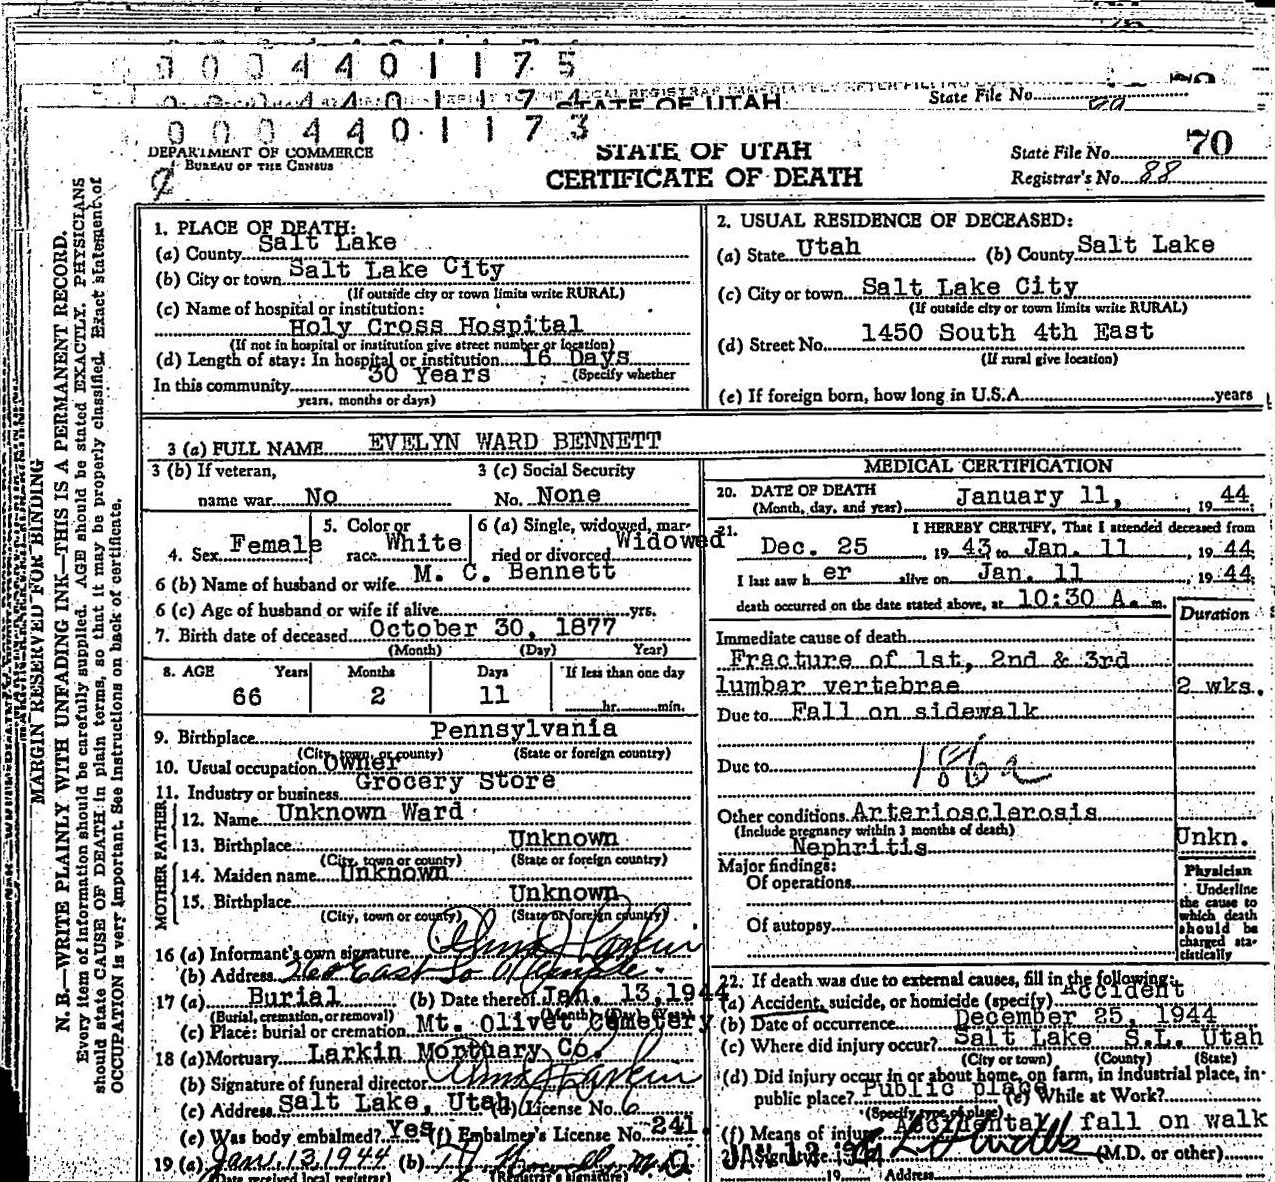 0004401175
0004401174
STATE OF UTAH
State File No.
0004401173
DEPARTMENT OF COMMERCE
BUREAU OF THE CENSUS
STATE OF UTAH
CERTIFICATE OF DEATH
State File No. 70
Registrar's No. 88
MARGIN RESERVED FOR BINDING
N. B.—WRITE PLAINLY WITH UNFADING INK—THIS IS A PERMANENT RECORD.
Every item of information should be carefully supplied. AGE should be stated EXACTLY. PHYSICIANS
should state CAUSE OF DEATH in plain terms, so that it may be properly classified. Exact statement of
OCCUPATION is very important. See instructions on back of certificate.
1. PLACE OF DEATH:
(a) County Salt Lake
(b) City or town Salt Lake City
(If outside city or town limits write RURAL)
(c) Name of hospital or institution:
Holy Cross Hospital
(If not in hospital or institution give street number or location)
(d) Length of stay: In hospital or institution 16 Days
(Specify whether
In this community 30 Years
years, months or days)
2. USUAL RESIDENCE OF DECEASED:
(a) State Utah (b) County Salt Lake
(c) City or town Salt Lake City
(If outside city or town limits write RURAL)
(d) Street No. 1450 South 4th East
(If rural give location)
(e) If foreign born, how long in U.S.A. years
3 (a) FULL NAME EVELYN WARD BENNETT
3 (b) If veteran,
name war No
3 (c) Social Security
No. None
4. Sex Female
5. Color or
race White
6 (a) Single, widowed, mar-
ried or divorced Widowed
6 (b) Name of husband or wife M. C. Bennett
6 (c) Age of husband or wife if alive yrs.
7. Birth date of deceased October 30, 1877
(Month) (Day) Year)
8. AGE Years Months Days If less than one day
66 2 11 hr. min.
9. Birthplace Pennsylvania
(City, town, or county) (State or foreign country)
10. Usual occupation Owner
11. Industry or business Grocery Store
FATHER
12. Name Unknown Ward
13. Birthplace Unknown
(City, town or county) (State or foreign country)
MOTHER
14. Maiden name Unknown
15. Birthplace Unknown
(City, town or county) (State or foreign country)
16 (a) Informant's own signature
(b) Address 260 East So Temple
17 (a) Burial (b) Date thereof Jan. 13,1944
(Burial, cremation, or removal) (Month) (Day) (Year)
(c) Place: burial or cremation Mt. Olivet Cemetery
18 (a) Mortuary Larkin Mortuary Co.
(b) Signature of funeral director
(c) Address Salt Lake, Utah (d) License No. 6
(e) Was body embalmed? Yes (f) Embalmer's License No. 241.
19 (a) Jan. 13, 1944 (b) M.D.
(Date received local registrar) (Registrar's signature)
MEDICAL CERTIFICATION
20. DATE OF DEATH
(Month, day, and year) January 11, 1944
21. I HEREBY CERTIFY, That I attended deceased from
Dec. 25, 1943 to Jan. 11, 1944
I last saw her alive on Jan. 11, 1944
death occurred on the date stated above, at 10:30 A. m.
Duration
Immediate cause of death
Fracture of 1st, 2nd & 3rd
lumbar vertebrae 2 wks.
Due to Fall on sidewalk
Due to
Other conditions Arteriosclerosis
(Include pregnancy within 3 months of death)
Nephritis Unkn.
Major findings:
Of operations
Of autopsy
Physician
Underline
the cause to
which death
should be
charged sta-
tistically
22. If death was due to external causes, fill in the following:
(a) Accident, suicide, or homicide (specify) Accident
(b) Date of occurrence December 25, 1944
(c) Where did injury occur? Salt Lake S.L. Utah
(City or town) (County) (State)
(d) Did injury occur in or about home, on farm, in industrial place, in
public place? Public place (e) While at Work?
(Specify type of place)
(f) Means of injury Accidental fall on walk
Signature (M.D. or other)
19 Address